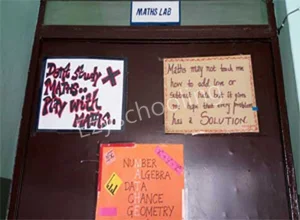 MATHS LAB
Don't Study
MATHS..
Play with
MATHS..
Maths may not teach me
how to add love or
subtract hate but it gives
me hope that every problem
has a SOLUTION
NUMBER
ALGEBRA
DATA
CHANCE
GEOMETRY